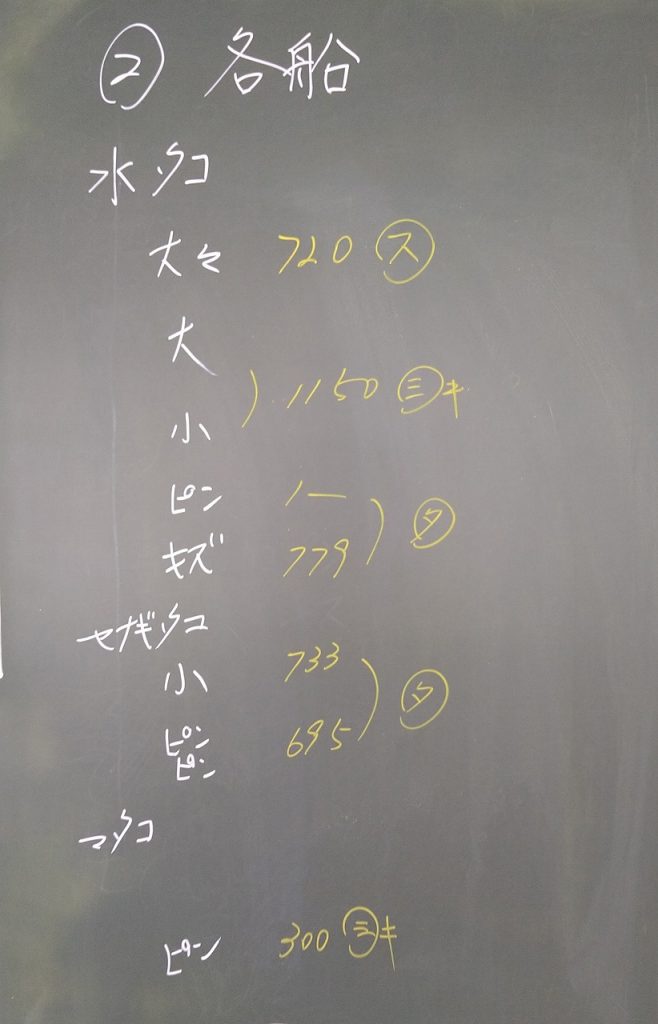 ② 各船
水タコ
大々 720 ㋜
大
) 1150 ㋯キ
小
ピン 1一
) ㋟
キズ 779
セナギタコ
小 733
) ㋟
ピン 695
ピン
マタコ
ピン 300 ㋯キ